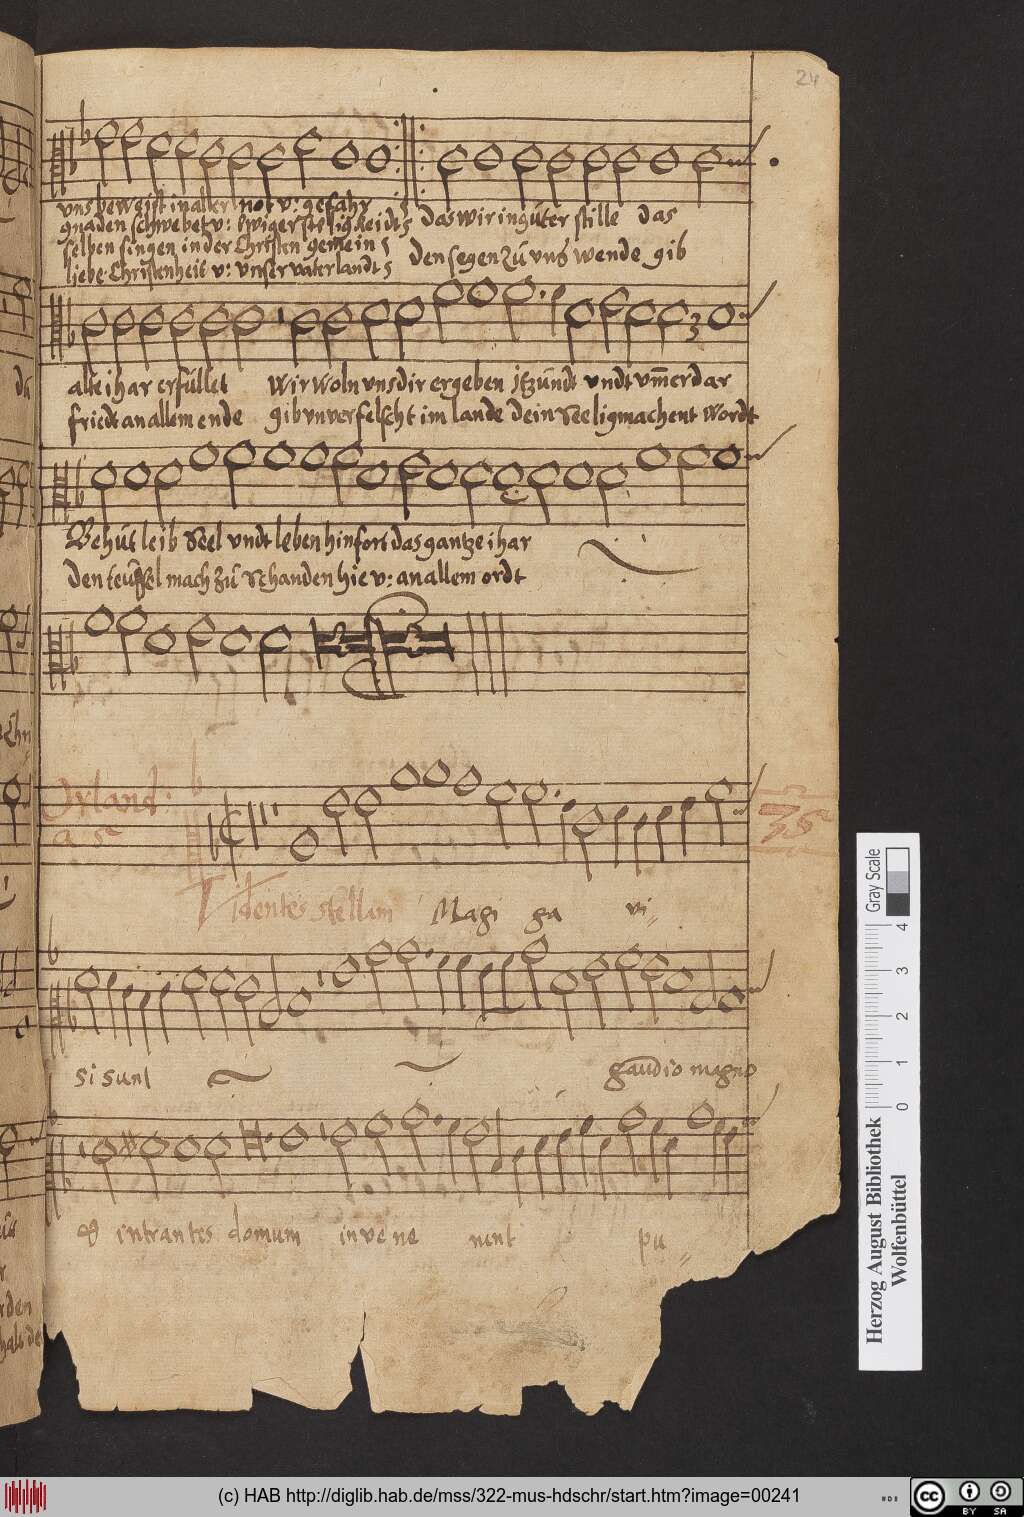 24
uns beweist in aller not v: gefahr
gnaden schwebet v: Ewiger Seligkeidts das wir in gúter stille das
selben singen in der Christen gemein
liebe Christenheit v: unser vaterlandts den segen zú uns wende gib
alte ihar erfüllet Wir woln uns dir ergeben itzúndt undt ūmerdar
friedt an allem ende gib unverfelscht im lande dein Seeligmachent Wordt
Behút leib Seel undt leben hinfort das gantze ihar
den teúffel mach zú Schanden hie v: an allem ordt
Orland:
a 5
75
Videntes stellam Magi ga vi
si sunt gaudio magno
& intrantes domum invene runt pu
Gray Scale
4
3
2
1
0
Herzog August Bibliothek
Wolfenbüttel
(c) HAB http://diglib.hab.de/mss/322-mus-hdschr/start.htm?image=00241
cc
BY SA